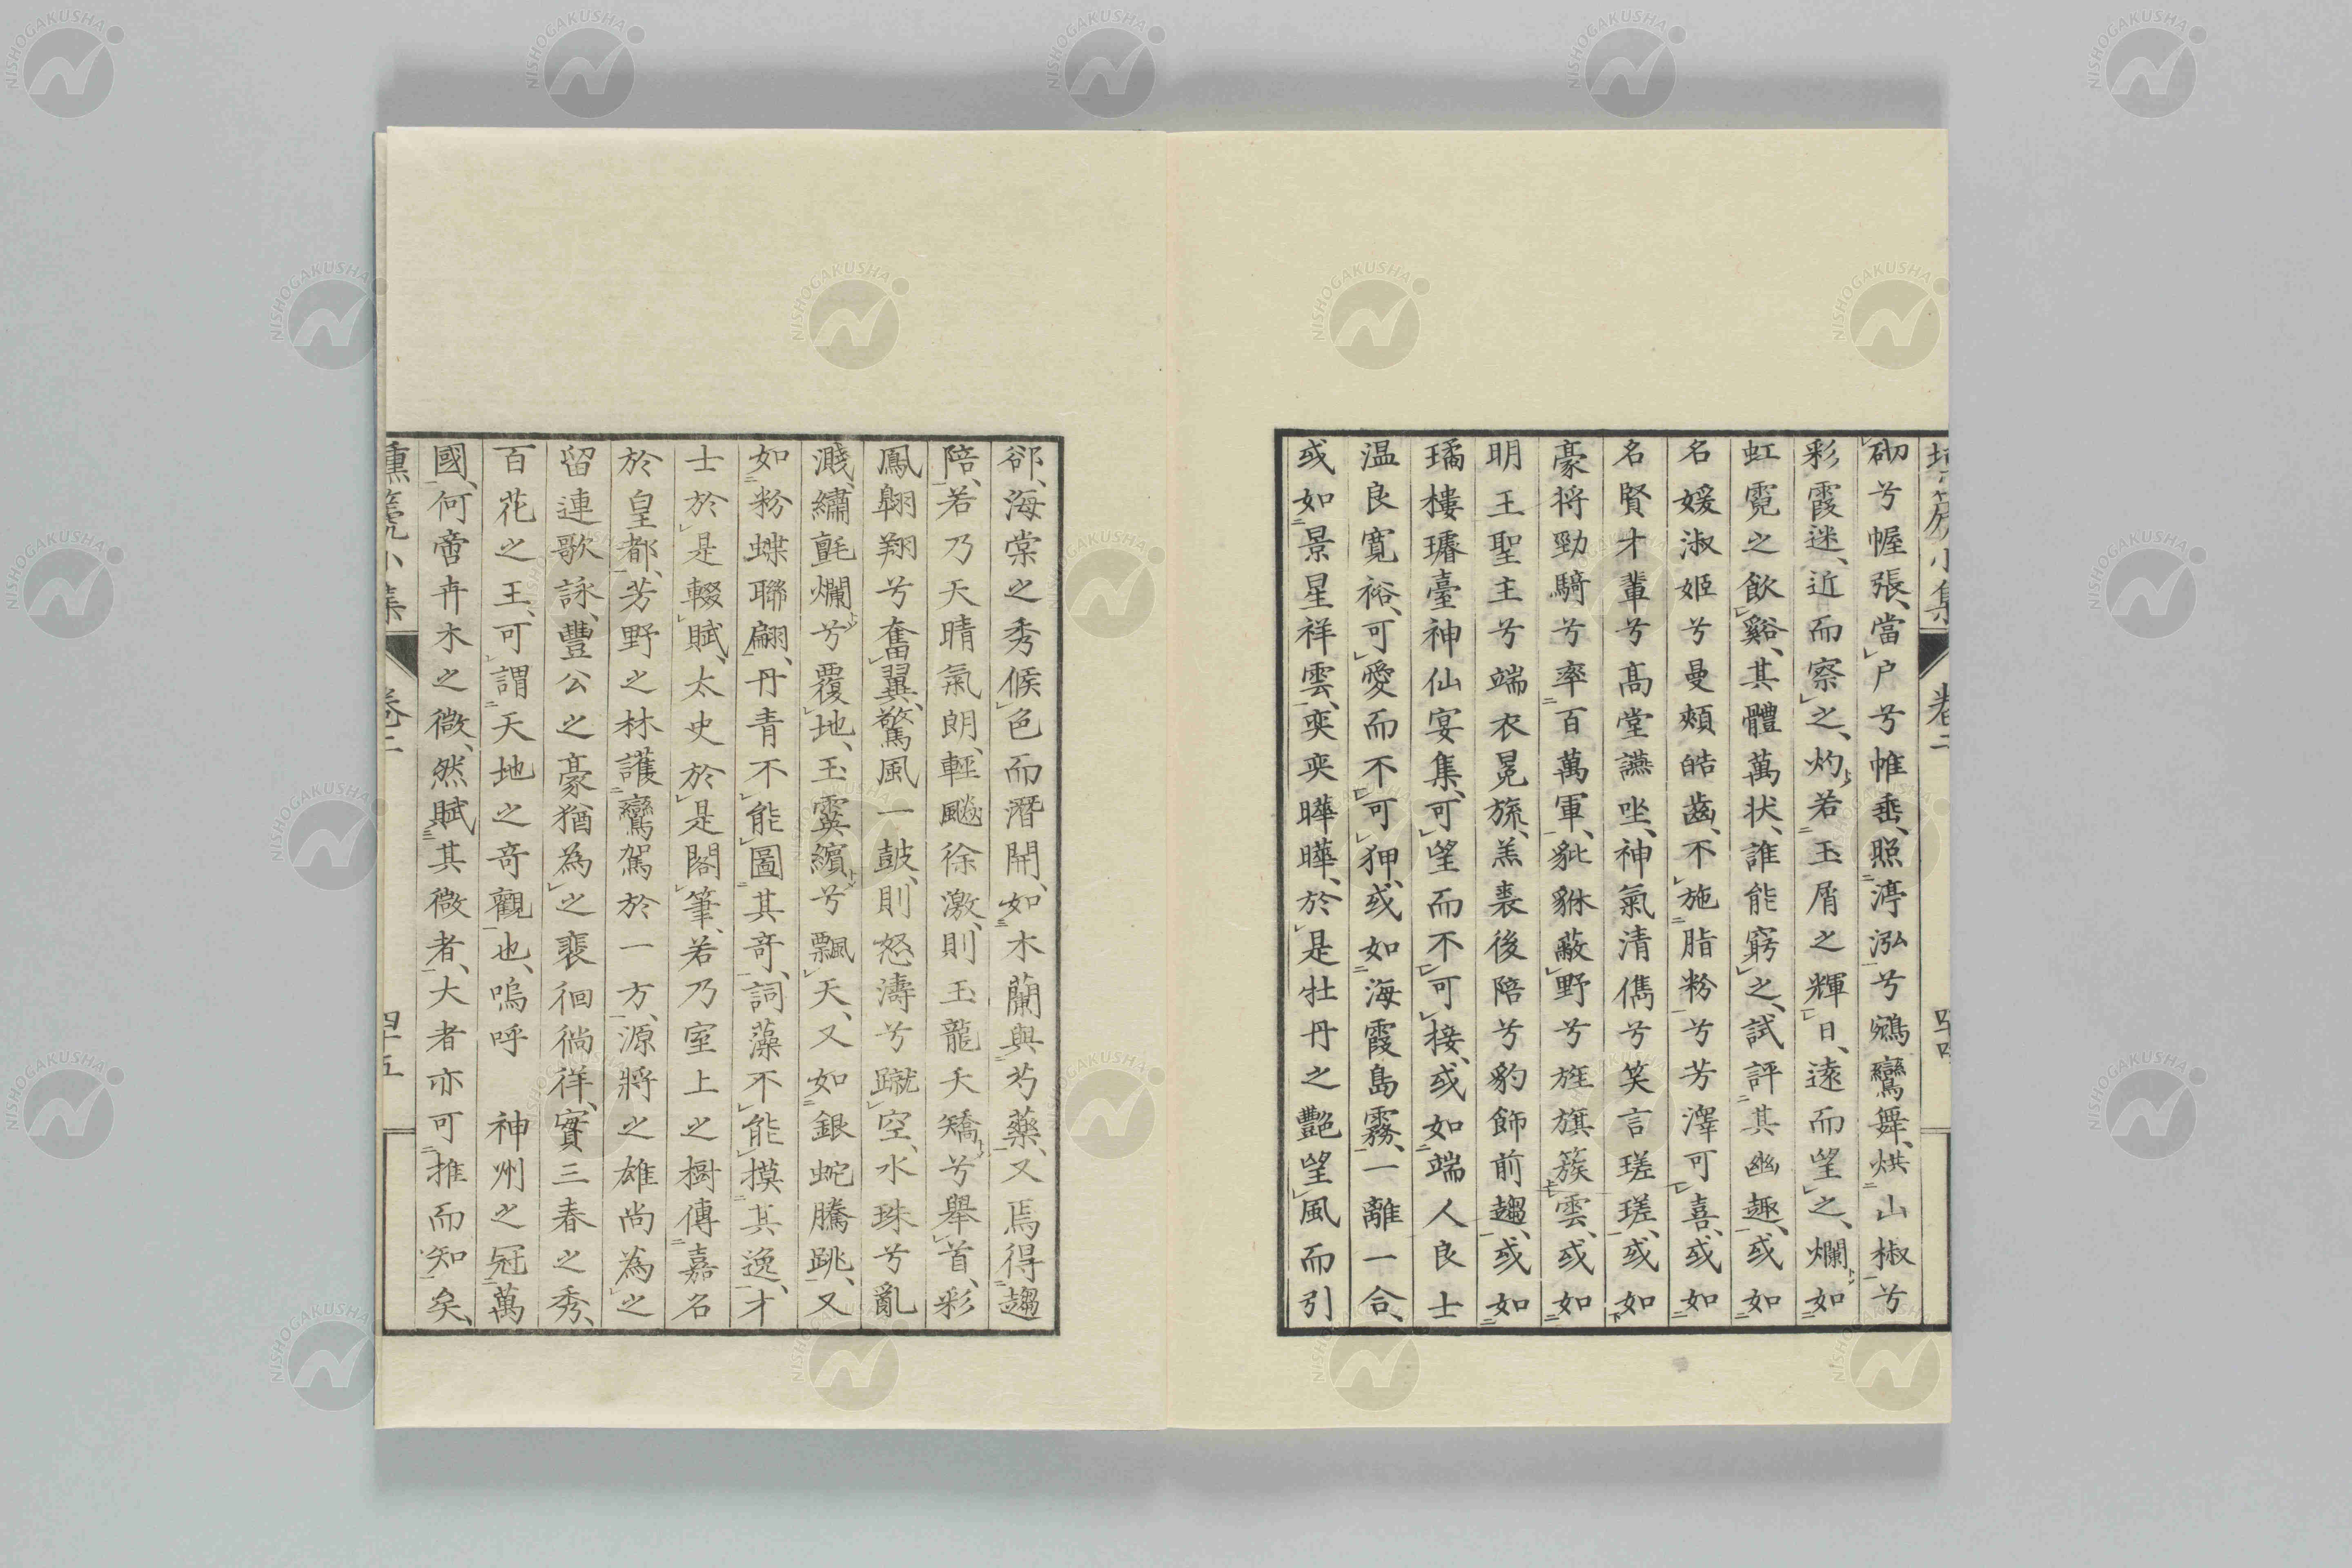 砌兮幄張、當戶兮帷垂、照渟泓兮鵷鸞舞、烘山椒兮
彩霞迷、近而察之、灼若玉屑之輝日、遠而望之、爛如
虹霓之飲谿、其體萬状、誰能窮之、試評其幽趣、或如
名媛淑姬兮曼頰皓齒、不施脂粉兮芳澤可喜、或如
名賢才輩兮高堂讌坐、神氣清儁兮笑言瑳瑳、或如
豪将勁騎兮率百萬軍、豼貅蔽野兮旌旗簇雲、或如
明王聖主兮端衣冕旒、羔裘後陪兮豹飾前趨、或如
璚樓璿臺神仙宴集、可望而不可接、或如端人良士
温良寬裕、可愛而不可狎、或如海霞島霧、一離一合、
或如景星祥雲、奕奕曄曄、於是牡丹之艷望風而引
郤、海棠之秀候色而潛開、如木蘭與芍藥、又焉得趨
陪、若乃天晴氣朗、輕颸徐激、則玉龍夭矯兮舉首、彩
鳳翺翔兮奮翼、驚風一鼓、則怒濤兮蹴空、水珠兮亂
濺、繡氈爛兮覆地、玉霙繽兮飄天、又如銀蛇騰跳、又
如粉蝶聯翩、丹青不能圖其竒、詞藻不能摸其逸、才
士於是輟賦、太史於是閣筆、若乃室上之樹傳嘉名
於皇都、芳野之林護鸞駕於一方、源將之雄尚為之
留連歌詠、豐公之豪猶為之裴徊徜徉、實三春之秀、
百花之王、可謂天地之竒觀也、嗚呼 神州之冠萬
國、何啻卉木之微、然賦其微者、大者亦可推而知矣、
卷二
四十五